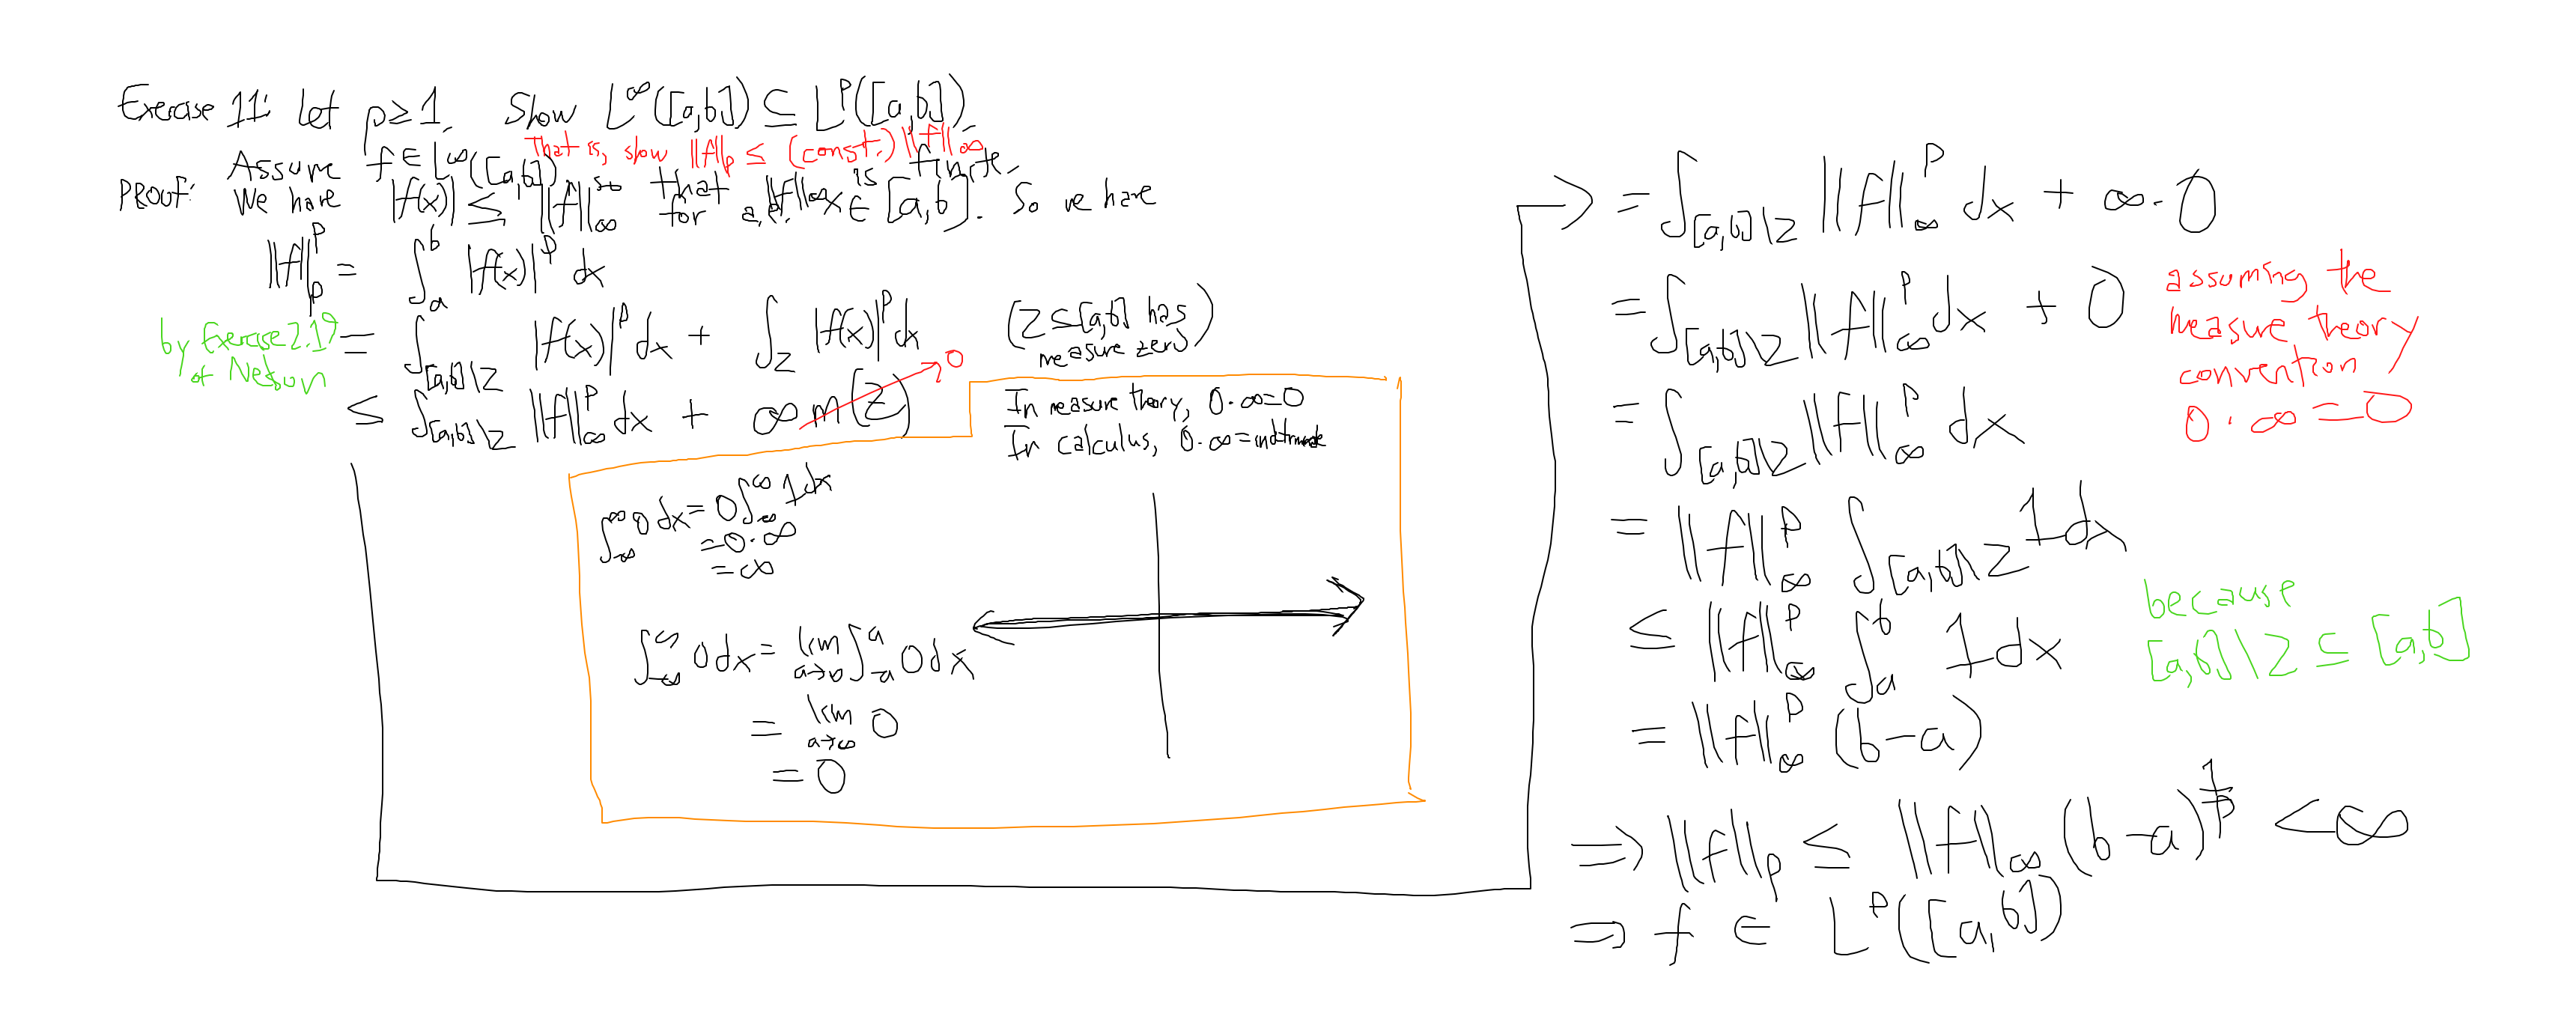 Exercise 11: Let p ≥ 1. Show L^∞([a,b]) ⊆ L^p([a,b]).
That is, show ||f||_p ≤ (const.) ||f||_∞
Assume f ∈ L^∞([a,b]) so that ||f||_∞ is finite.
PROOF: We have |f(x)| ≤ ||f||_∞ for a.e. x ∈ [a,b]. So we have
||f||_p^p = ∫_a^b |f(x)|^p dx
by Exercise 2.19 of Nelson
= ∫_{[a,b]\Z} |f(x)|^p dx + ∫_Z |f(x)|^p dx (Z ⊆ [a,b] has measure zero)
≤ ∫_{[a,b]\Z} ||f||_∞^p dx + ∞ m(Z) → 0
In measure theory, 0·∞ = 0
In calculus, 0·∞ =
∫_{-∞}^∞ 0 dx = 0 ∫_{-∞}^∞ 1 dx
= 0·∞
= ∞
∫_{-∞}^∞ 0 dx = lim_{a→∞} ∫_{-a}^a 0 dx
= lim_{a→∞} 0
= 0
→ = ∫_{[a,b]\Z} ||f||_∞^p dx + ∞·0
= ∫_{[a,b]\Z} ||f||_∞^p dx + 0
assuming the
measure theory
convention
0·∞ = 0
= ∫_{[a,b]\Z} ||f||_∞^p dx
= ||f||_∞^p ∫_{[a,b]\Z} 1 dx
≤ ||f||_∞^p ∫_a^b 1 dx
because
[a,b]\Z ⊆ [a,b]
= ||f||_∞^p (b-a)
⇒ ||f||_p ≤ ||f||_∞ (b-a)^{1/p} < ∞
⇒ f ∈ L^p([a,b])